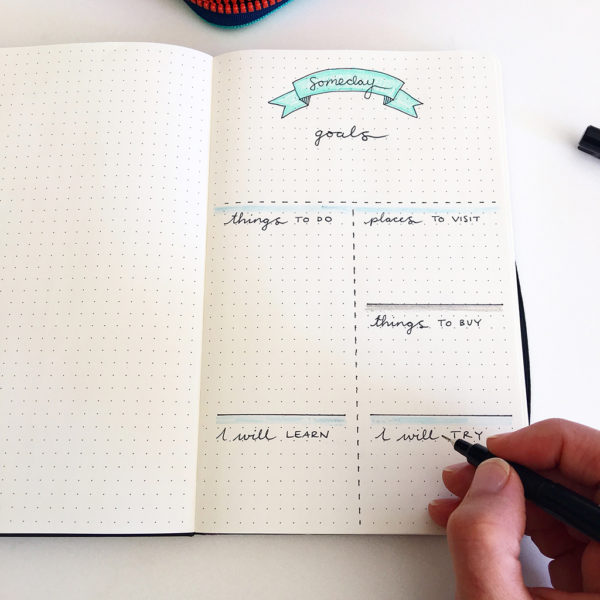 Someday
goals
things TO DO
places TO VISIT
things TO BUY
I will LEARN
I will TRY